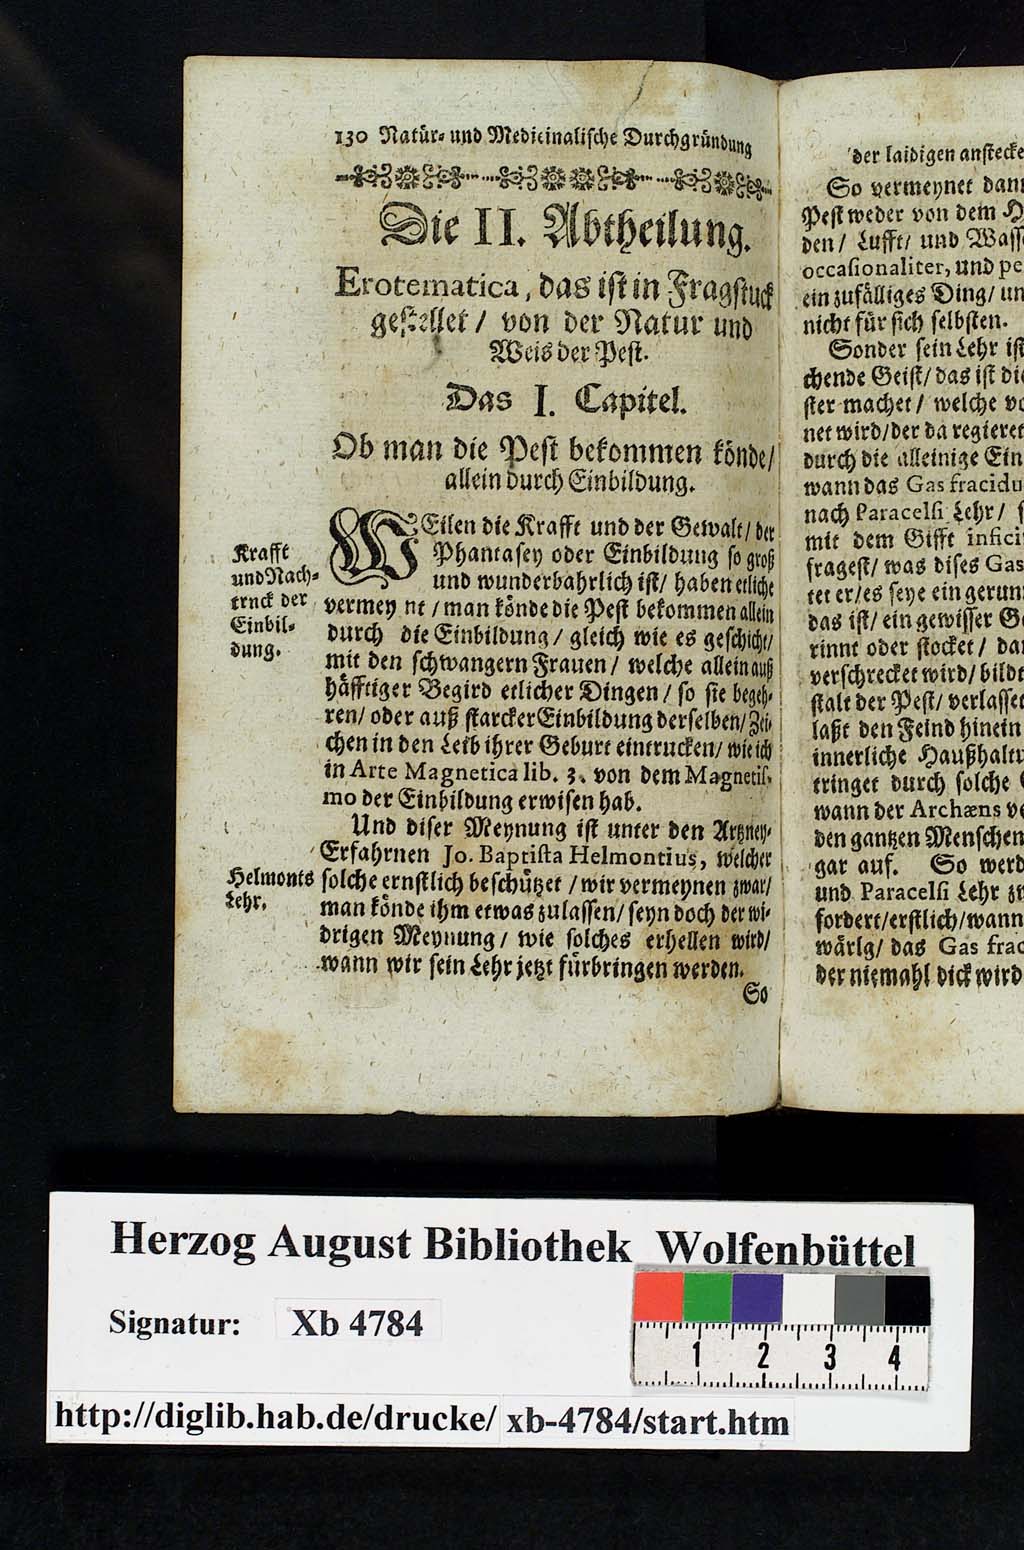 130 Natür- und Medicinalische Durchgründung
Die II. Abtheilung.
Erotematica, das ist in Fragstuck
gestellet / von der Natur und
Weis der Pest.
Das I. Capitel.
Ob man die Pest bekommen könde /
allein durch Einbildung.
WEilen die Krafft und der Gewalt / der
Phantasey oder Einbildung so groß
und wunderbahrlich ist / haben etliche
vermeynt / man könde die Pest bekommen allein
durch die Einbildung / gleich wie es geschicht /
mit den schwangern Frauen / welche allein auß
häfftiger Begird etlicher Dingen / so sie begeh-
ren / oder auß starcker Einbildung derselben / Zei-
chen in den Leib ihrer Geburt eintrucken / wie ich
in Arte Magnetica lib. 3. von dem Magnetis-
mo der Einbildung erwisen hab.
Krafft
und Nach-
truck der
Einbil-
dung.
Und diser Meynung ist unter den Artzney-
Erfahrnen Jo. Baptista Helmontius, welcher
solche ernstlich beschützet / wir vermeynen zwar /
man könde ihm etwas zulassen / seyn doch der wi-
drigen Meynung / wie solches erhellen wird /
wann wir sein Lehr jetzt fürbringen werden.
Helmonts
Lehr.
So
der laidigen anstecke
So vermeynet dann
Pest weder von dem H
den / Lufft / und Wasse
occasionaliter, und pe
ein zufälliges Ding / un
nicht für sich selbsten.
Sonder sein Lehr ist
chende Geist / das ist die
ster machet / welche vo
net wird / der da regieret
durch die alleinige Ein
wann das Gas fracidu
nach Paracelsi Lehr / s
mit dem Gifft infici
fragest / was dises Gas
tet er / es seye ein gerun
das ist / ein gewisser Ge
rinnt oder stocket / da
verschrecket wird / bildt
stalt der Pest / verlasset
laßt den Feind hinein
innerliche Haußhaltu
tringet durch solche
wann der Archæns ve
den gantzen Menschen
gar auf. So werd
und Paracelsi Lehr zw
fordert / erstlich / wann
wärlg / das Gas frac
der niemahl dick wird
Herzog August Bibliothek Wolfenbüttel
Signatur: Xb 4784
1 2 3 4
http://diglib.hab.de/drucke/ xb-4784/start.htm